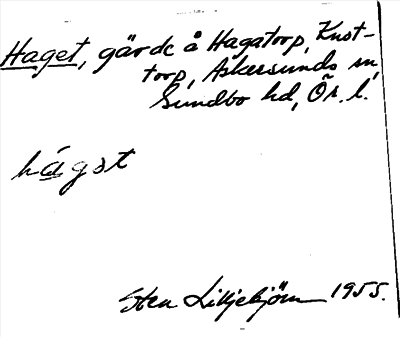 Haget, gärde å Hagatorp, Knut-
torp, Askersunds sn,
Sundbo hd, Ör. l.
hágət
Sten Liljebjörn 1955.